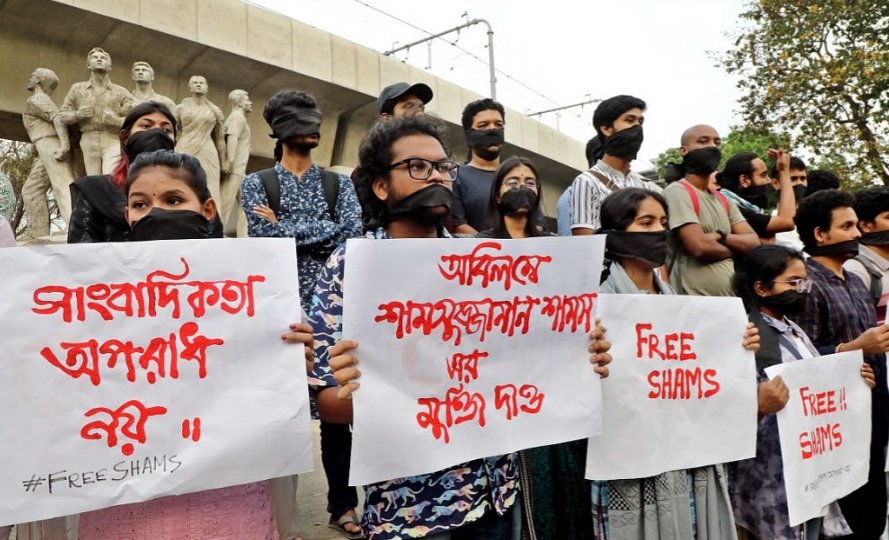 সাংবাদিকতা
অপরাধ
নয় ॥
#FREE SHAMS
অবিলম্বে
শামসুজ্জামান শামস
এর
মুক্তি দাও
FREE
SHAMS
FREE !!
SHAMS